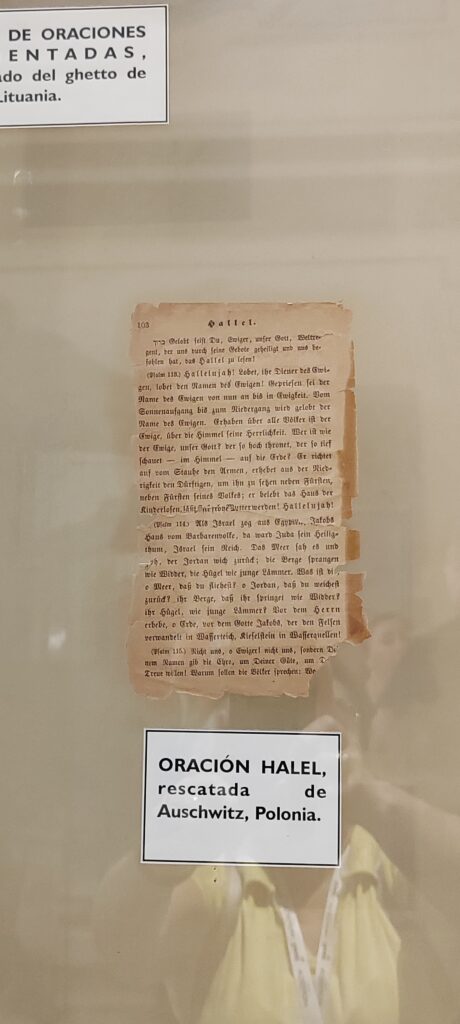 DE ORACIONES
ENTADAS,
ado del ghetto de
Lituania.
103
Hallel.
ברוך Gelobt seist Du, Ewiger, unser Gott, Weltre-
gent, der uns durch seine Gebote geheiligt und uns be-
fohlen hat, das Hallel zu lesen!
(Psalm 113.) Hallelujah! Lobet, ihr Diener des Ewi-
gen, lobet den Namen des Ewigen! Gepriesen sei der
Name des Ewigen von nun an bis in Ewigkeit. Vom
Sonnenaufgang bis zum Niedergang wird gelobt der
Name des Ewigen. Erhaben über alle Völker ist der
Ewige, über die Himmel seine Herrlichkeit. Wer ist wie
der Ewige, unser Gott? der so hoch thronet, der so tief
schauet — im Himmel — auf die Erde? Er richtet
auf vom Staube den Armen, erhebet aus der Nied-
rigkeit den Dürftigen, um ihn zu setzen neben Fürsten,
neben Fürsten seines Volkes; er belebt das Haus der
Kinderlosen, werden! Hallelujah!
(Psalm 114.) Als Israel zog aus Egypten, Jakobs
Haus vom Barbarenvolke, da ward Juda sein Heilig-
thum, Israel sein Reich. Das Meer sah es und
floh, der Jordan wich zurück; die Berge sprangen
wie Widder, die Hügel wie junge Lämmer. Was ist
o Meer, daß du fliehest? o Jordan, daß du weichest
zurück? ihr Berge, daß ihr springet wie Widder?
ihr Hügel, wie junge Lämmer? Vor dem Herrn
erbebe, o Erde, vor dem Gotte Jakobs, der den Felsen
verwandelt in Wasserteich, Kieselstein in Wasserquellen!
(Psalm 115.) Nicht uns, o Ewiger! nicht uns, sondern Dei
nem Namen gib die Ehre, um Deiner Güte, um D
Treue willen! Warum sollen die Völker sprechen: Wo
ORACIÓN HALEL,
rescatada de
Auschwitz, Polonia.